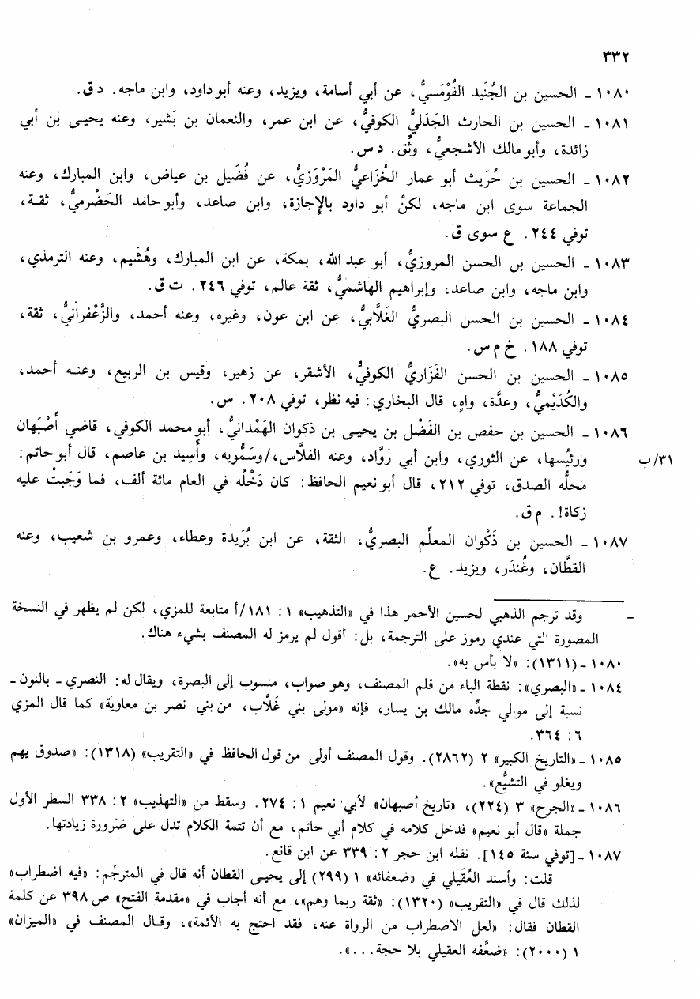 ٣٣٢
١٠٨٠ ـ الحسين بن الجُنَيد القُومَسيُّ، عن أبي أسامة، ويزيد، وعنه أبو داود، وابن ماجه. د ق.
١٠٨١ ـ الحسين بن الحارث الجَدَليُّ الكوفيُّ، عن ابن عمر، والنعمان بن بَشير، وعنه يحيى بن أبي
زائدة، وأبو مالك الأشجعيُّ، وثِّق. د س.
١٠٨٢ ـ الحسين بن حُرَيث أبو عمار الخُزاعيُّ المَرْوَزيُّ، عن فُضَيل بن عياض، وابن المبارك، وعنه
الجماعة سوى ابن ماجه، لكنْ أبو داود بالإجازة، وابن صاعد، وأبو حامد الحَضْرميُّ، ثقة،
توفي ٢٤٤. ع سوى ق.
١٠٨٣ ـ الحسين بن الحسن المروزيُّ، أبو عبد الله، بمكة، عن ابن المبارك، وهُشَيم، وعنه الترمذي،
وابن ماجه، وابن صاعد، وإبراهيم الهاشميُّ، ثقة عالم، توفي ٢٤٦. ت ق.
١٠٨٤ ـ الحسين بن الحسن البصريُّ الغَلَّابيُّ، عن ابن عون، وغيره، وعنه أحمد، والزَّعْفرانيُّ، ثقة،
توفي ١٨٨. خ م س.
١٠٨٥ ـ الحسين بن الحسن الفَزَاريُّ الكوفيُّ، الأشقر، عن زهير، وقيس بن الربيع، وعنه أحمد،
والكُدَيْميُّ، وعدَّة، واهٍ، قال البخاري: فيه نظر، توفي ٢٠٨. س.
١٠٨٦ ـ الحسين بن حفص بن الفَضْل بن يحيى بن ذكوان الهَمْدانيُّ، أبو محمد الكوفي، قاضي أَصْبَهان
ورئيسُها، عن الثوري، وابن أبي روَّاد، وعنه الفلَّاس،/وسَمُّويه، وأَسِيد بن عاصم، قال أبو حاتم: ٣١/ب
محلُّه الصدق، توفي ٢١٢، قال أبو نعيم الحافظ: كان دَخْلُه في العام مائة ألف، فما وَجَبتْ عليه
زكاة!. م ق.
١٠٨٧ ـ الحسين بن ذَكْوان المعلِّم البصريُّ، الثقة، عن ابن بُرَيدة وعطاء، وعمرو بن شعيب، وعنه
القطَّان، وغُندَر، ويزيد. ع.
ـ وقد ترجم الذهبي لحسين الأحمر هذا في «التذهيب» ١: ١٨١/أ متابعة للمزي، لكن لم يظهر في النسخة
المصورة التي عندي رموز على الترجمة، بل: أقول لم يرمز له المصنف بشيء هناك.
١٠٨٠ ـ (١٣١١): «لا بأس به».
١٠٨٤ ـ «البصري»: نقطة الباء من قلم المصنف، وهو صواب، منسوب إلى البصرة، ويقال له: النصري ـ بالنون ـ
نسبة إلى موالي جدِّه مالك بن يسار، فإنه «مولى بني غَلَّاب، من بني نصر بن معاوية» كما قال المزي
٦: ٣٦٤.
١٠٨٥ ـ «التاريخ الكبير» ٢ (٢٨٦٢). وقول المصنف أولى من قول الحافظ في «التقريب» (١٣١٨): «صدوق يهم
ويغلو في التشيُّع».
١٠٨٦ ـ «الجرح» ٣ (٢٢٤)، «تاريخ أصبهان» لأبي نعيم ١: ٢٧٤. وسقط من «التهذيب» ٢: ٣٣٨ السطر الأول
جملة «قال أبو نعيم» فدخل كلامه في كلام أبي حاتم، مع أن تتمة الكلام تدل على ضرورة زيادتها.
١٠٨٧ ـ [توفي سنة ١٤٥]. نقله ابن حجر ٢: ٣٣٩ عن ابن قانع.
قلت: وأسند العُقَيلي في «ضعفائه» ١ (٢٩٩) إلى يحيى القطان أنه قال في المترجَم: «فيه اضطراب»
لذلك قال في «التقريب» (١٣٢٠): «ثقة ربما وهم»، مع أنه أجاب في «مقدمة الفتح» ص ٣٩٨ عن كلمة
القطان فقال: «لعل الاضطراب من الرواة عنه، فقد احتج به الأئمة»، وقال المصنف في «الميزان»
١ (٢٠٠٠): «ضعَّفه العقيلي بلا حجة...».